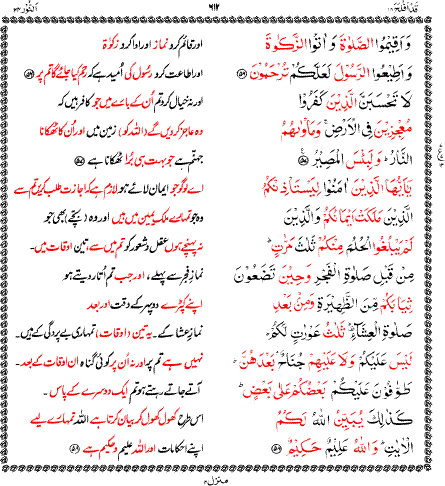 قد افلح ۱۸
۶۱۷
النور ۲۴
وَاَقِيْمُوا الصَّلٰوةَ وَ اٰتُوا الزَّكٰوةَ
وَ اَطِيْعُوا الرَّسُوْلَ لَعَلَّكُمْ تُرْحَمُوْنَ ۵۶
لَا تَحْسَبَنَّ الَّذِيْنَ كَفَرُوْا
مُعْجِزِيْنَ فِى الْاَرْضِ ۚ وَمَاْوٰىهُمُ
النَّارُ ؕ وَ لَبِئْسَ الْمَصِيْرُ ۵۷
يٰۤاَيُّهَا الَّذِيْنَ اٰمَنُوْا لِيَسْتَاْذِنْكُمُ
الَّذِيْنَ مَلَكَتْ اَيْمَانُكُمْ وَالَّذِيْنَ
لَمْ يَبْلُغُوا الْحُلُمَ مِنْكُمْ ثَلٰثَ مَرّٰتٍ ؕ
مِنْ قَبْلِ صَلٰوةِ الْفَجْرِ وَحِيْنَ تَضَعُوْنَ
ثِيَابَكُمْ مِّنَ الظَّهِيْرَةِ وَمِنْۢ بَعْدِ
صَلٰوةِ الْعِشَآءِ ؕ ثَلٰثُ عَوْرٰتٍ لَّكُمْ ؕ
لَيْسَ عَلَيْكُمْ وَلَا عَلَيْهِمْ جُنَاحٌۢ بَعْدَهُنَّ ؕ
طَوّٰفُوْنَ عَلَيْكُمْ بَعْضُكُمْ عَلٰى بَعْضٍ ؕ
كَذٰلِكَ يُبَيِّنُ اللّٰهُ لَكُمُ
الْاٰيٰتِ ؕ وَاللّٰهُ عَلِيْمٌ حَكِيْمٌ ۵۸
اور قائم کرو نماز اور ادا کرو زکوٰۃ
اور اطاعت کرو رسول کی اُمید ہے کہ رحم کیا جائے گا تم پر ۵۶
اور نہ خیال کرو تم اُن کے بارے میں جو کافر ہیں کہ
وہ عاجز کر دیں گے (اللہ کو) زمین میں اور اُن کا ٹھکانا
جہنّم ہے جو بہت ہی بُرا ٹھکانا ہے ۵۷
اے لوگو جو ایمان لائے ہو لازم ہے کہ اجازت طلب کریں تم سے
وہ جو تمہارے ملکِ یمین میں ہیں اور وہ (بچّے بھی) جو
نہ پہنچے ہوں عقل و شعور کو تم میں سے، تین اوقات میں۔
نمازِ فجر سے پہلے، اور جب تم اُتار دیتے ہو
اپنے کپڑے دوپہر کے وقت اور بعد
نمازِ عشا کے۔ یہ تین (اوقات) تمہاری بے پردگی کے ہیں۔
نہیں ہے تم پر اور نہ اُن پر کوئی گناہ ان اوقات کے بعد۔
آتے جاتے رہتے ہو تم ایک دوسرے کے پاس۔
اس طرح کھول کھول کر بیان کرتا ہے اللہ تمہارے لیے
اپنے احکامات اور اللہ علیم و حکیم ہے ۵۸
منزل ۴